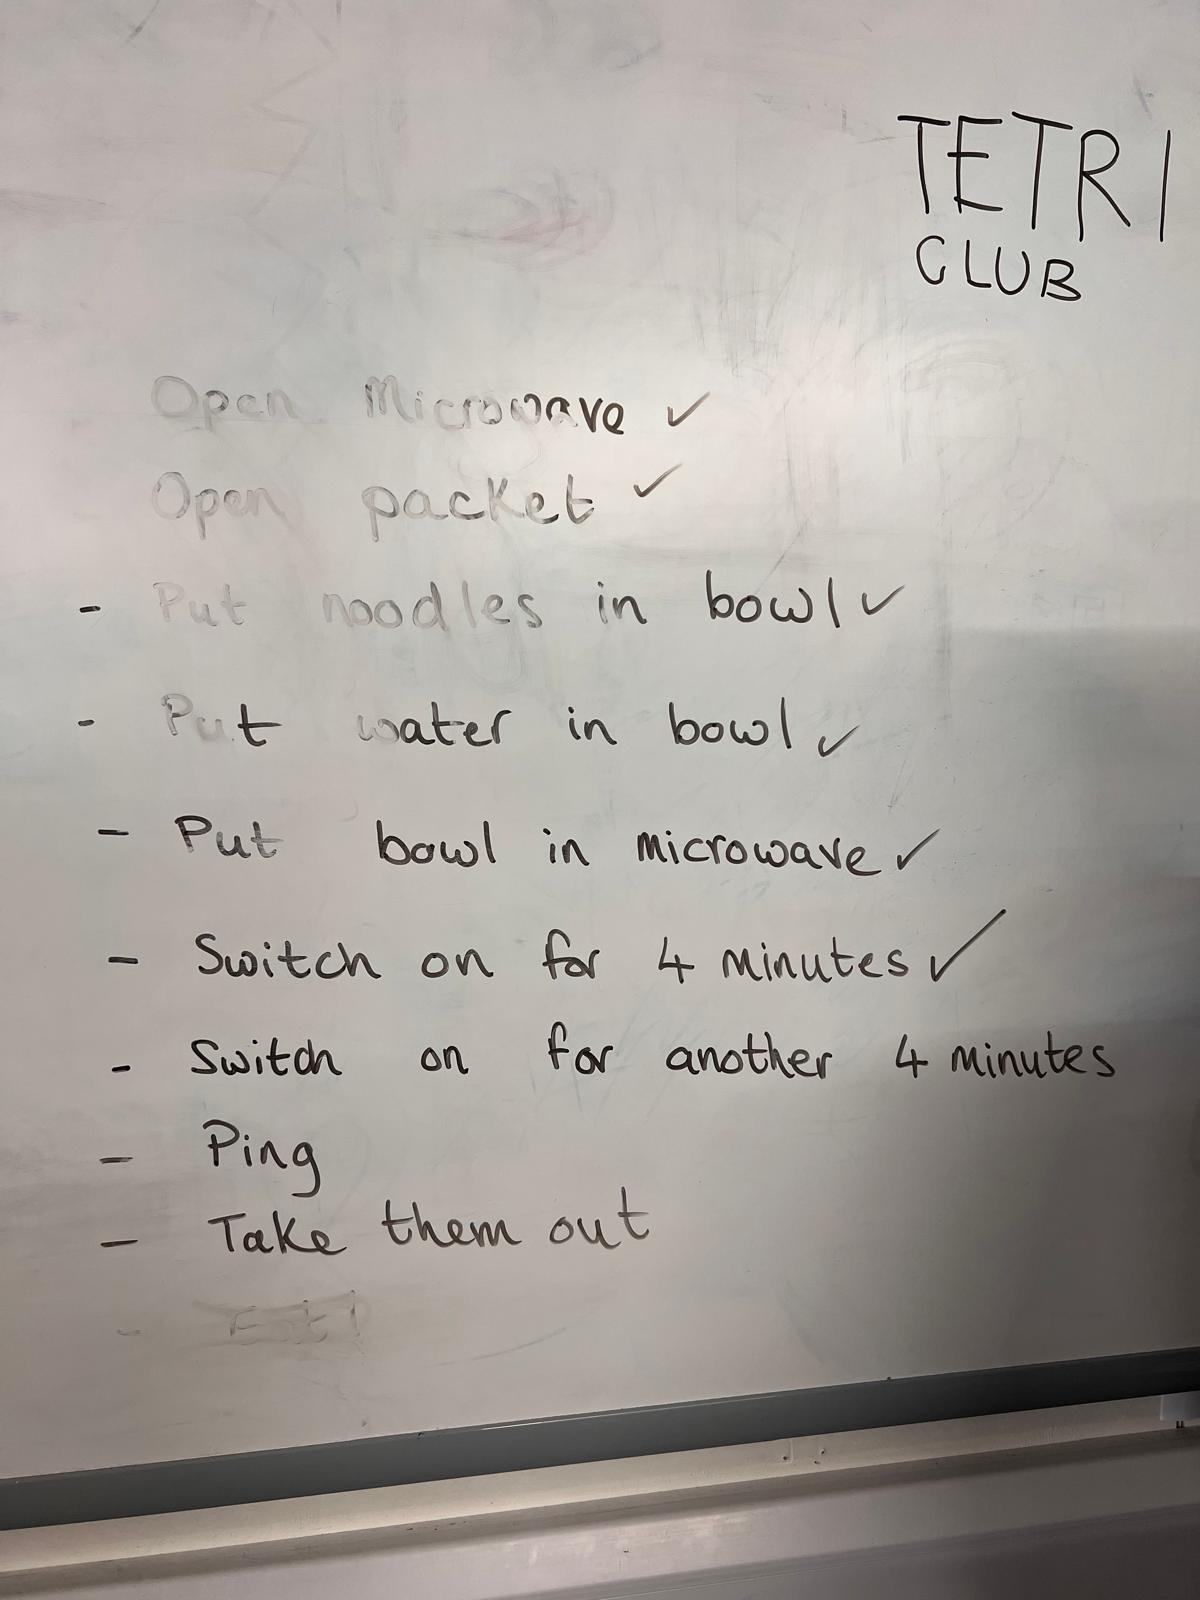 TETRI
CLUB
Open Microwave ✓
Open packet ✓
- Put noodles in bowl ✓
- Put water in bowl ✓
- Put bowl in microwave ✓
- Switch on for 4 minutes ✓
- Switch on for another 4 minutes
- Ping
- Take them out